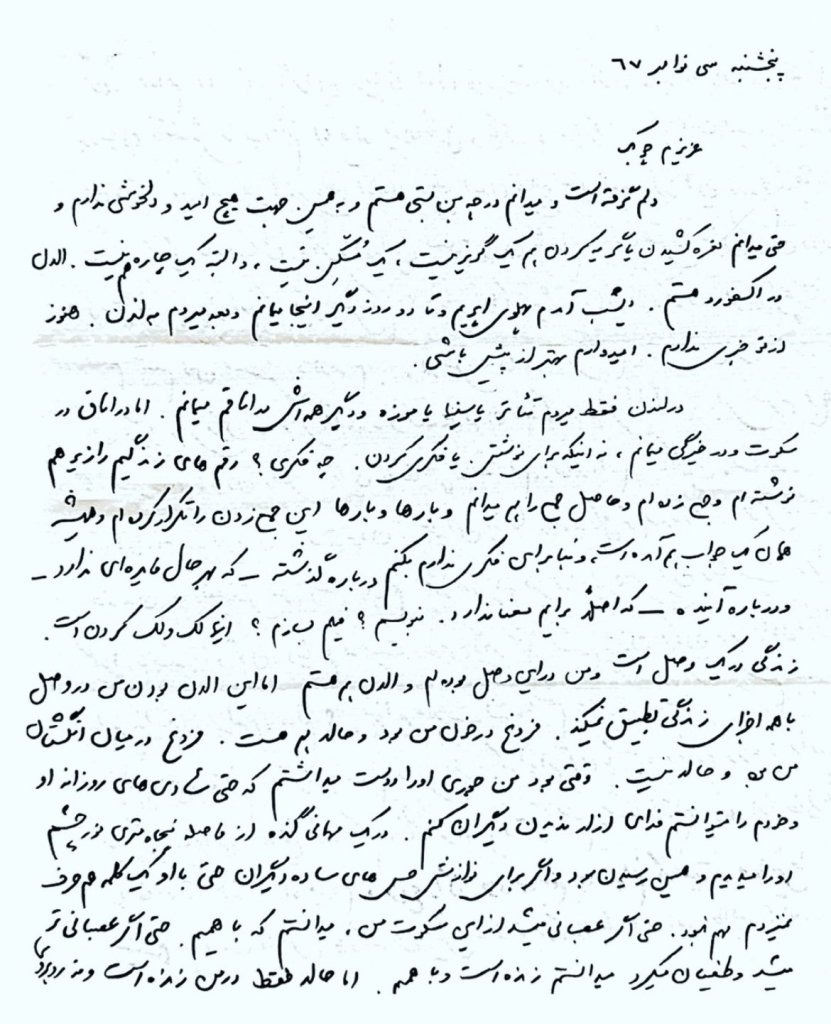 پنجشنبه سی نوامبر ٦٧
عزیزم چوبک
دلم گرفته است و میدانم در چه بن بستی هستم و به همین جهت هیچ امید و دلخوشی ندارم و
حتی میدانم نعره کشیدن یا گریه کردن هم یک گریز نیست، یک مُسَکِّن نیست، و البته یک چاره هم نیست. الان
در اکسفورد هستم. دیشب آمدم پهلوی ابریم و تا دو روز دیگر اینجا میمانم و بعد میروم به لندن. هنوز
از تو خبری ندارم. امیدوارم بهتر از پیش باشی.
در لندن فقط میروم تئاتر یا سینما یا موزه و دیگر همه‌اش در اتاقم میمانم. اما در اتاق در
سکوت و در خیرگی میمانم، نه اینکه برای نوشتن یا فکری کردن. چه فکری؟ رقم های زندگیم را زیر هم
نوشته ام و جمع زده ام و حاصل جمع را هم میدانم و بارها و بارها این جمع زدن را تکرار کرده ام و همیشه
همان یک جواب هم آمده است، و بنابراین فکری ندارم بکنم درباره گذشته – که بهر حال فایده‌ای ندارد –
و درباره آینده – که اصلاً برایم معنا ندارد. بنویسم؟ فیلم بسازم؟ اینها لک و لک کردن است.
زندگی در یک وصل است و من در این وصل بوده ام و الان هم هستم اما این الان بودن من در وصل
با همه اجزای زندگی تطبیق نمیکند. فروغ در خون من بود و حالا هم هست. فروغ در میان انگشتان
من بود و حالا نیست. وقتی بود من جوری او را دوست میداشتم که حتی شادی های روزانه او
و خودم را میتوانستم فدای از او ندیدن دیگران کنم. در یک مهمانی گنده از فاصله پنجاه متری نور چشم
او را میدیدم و همین رسیدن بود و اگر برای نوازش حس های ساده دیگران حتی با او یک کلمه هم حرف
نمیزدم مهم نبود. حتی اگر عصبانی میشد از این سکوت من، میدانستم که با همیم. حتی اگر عصبانی تر
میشد و طغیان میکرد میدانستم زنده است و با همیم. اما حالا فقط در من زنده است و نه روبروی